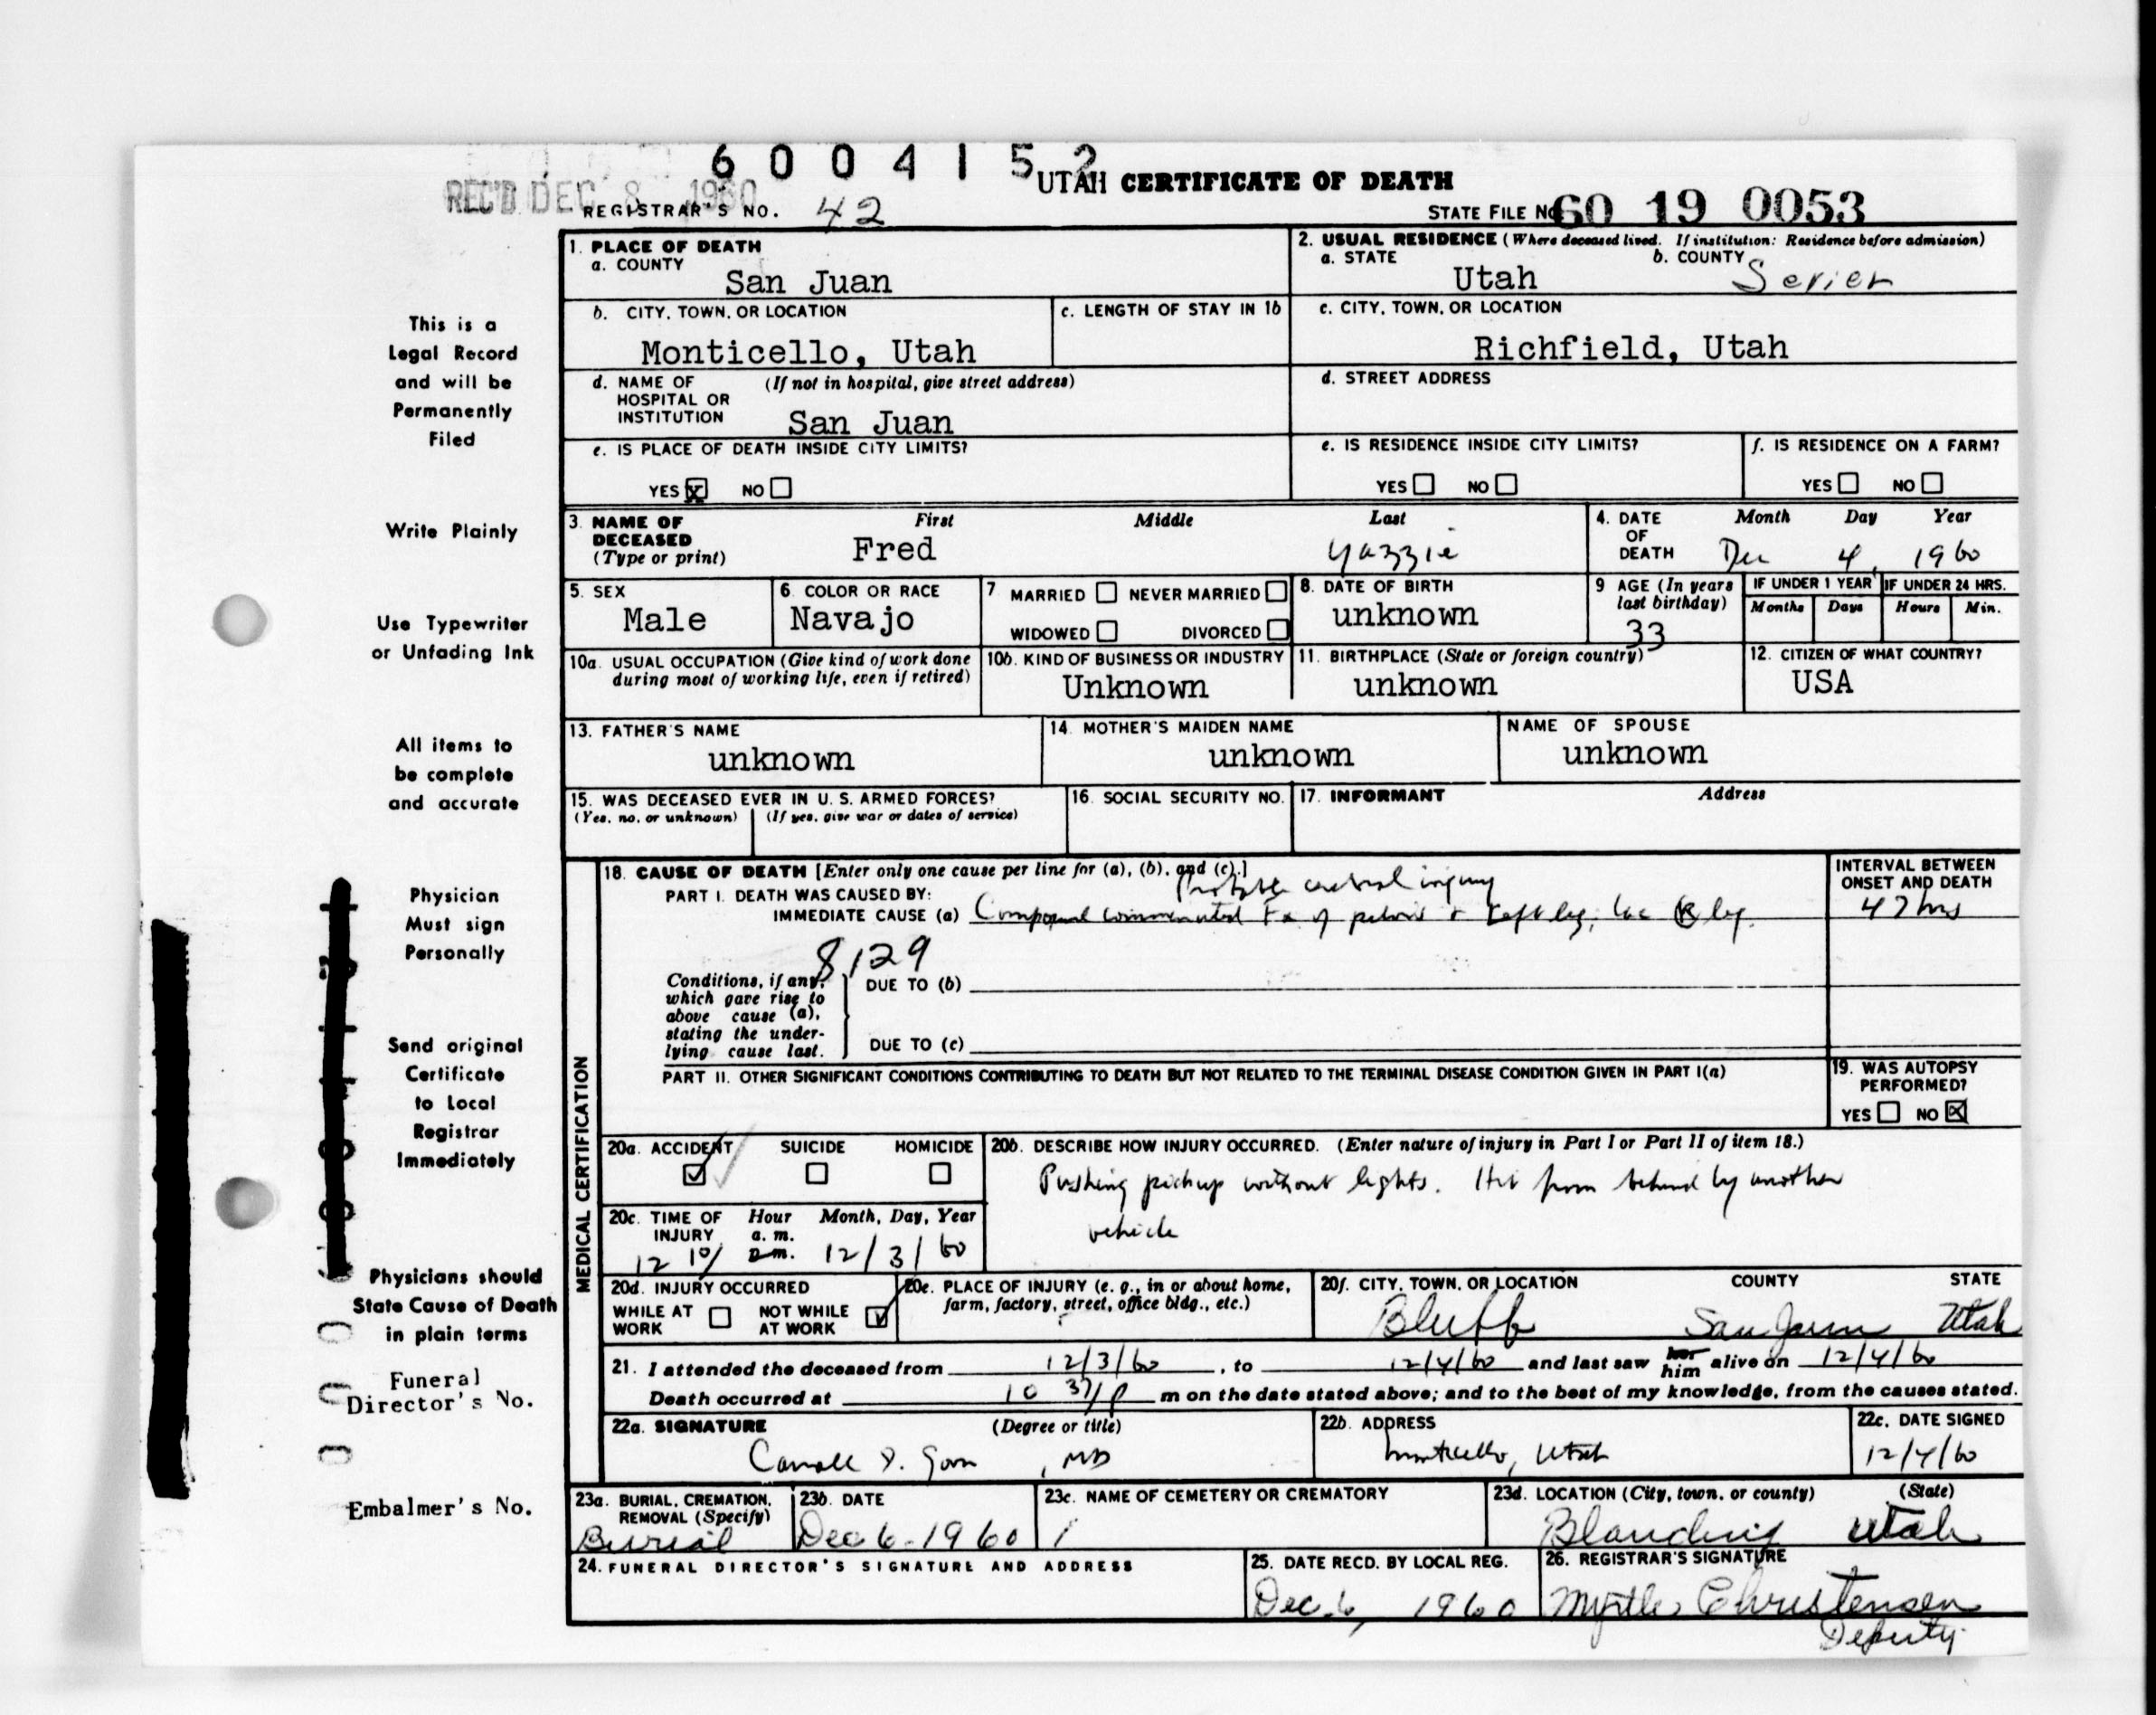 6 0 0 4 1 5 2
REC'D DEC 8 1960
UTAH CERTIFICATE OF DEATH
REGISTRAR'S NO. 42
STATE FILE No. 60 19 0053
1. PLACE OF DEATH
a. COUNTY
San Juan
2. USUAL RESIDENCE (Where deceased lived. If institution: Residence before admission)
a. STATE Utah
b. COUNTY Sevier
b. CITY, TOWN, OR LOCATION
Monticello, Utah
c. LENGTH OF STAY IN 1b
c. CITY, TOWN, OR LOCATION
Richfield, Utah
d. NAME OF HOSPITAL OR INSTITUTION (If not in hospital, give street address)
San Juan
d. STREET ADDRESS
e. IS PLACE OF DEATH INSIDE CITY LIMITS?
YES X NO
e. IS RESIDENCE INSIDE CITY LIMITS?
YES NO
f. IS RESIDENCE ON A FARM?
YES NO
3. NAME OF DECEASED (Type or print)
First Middle Last
Fred Yazzie
4. DATE OF DEATH
Month Day Year
Dec 4, 1960
5. SEX
Male
6. COLOR OR RACE
Navajo
7 MARRIED NEVER MARRIED
WIDOWED DIVORCED
8. DATE OF BIRTH
unknown
9 AGE (In years last birthday)
33
IF UNDER 1 YEAR
Months Days
IF UNDER 24 HRS.
Hours Min.
10a. USUAL OCCUPATION (Give kind of work done during most of working life, even if retired)
10b. KIND OF BUSINESS OR INDUSTRY
Unknown
11. BIRTHPLACE (State or foreign country)
unknown
12. CITIZEN OF WHAT COUNTRY?
USA
13. FATHER'S NAME
unknown
14. MOTHER'S MAIDEN NAME
unknown
NAME OF SPOUSE
unknown
15. WAS DECEASED EVER IN U. S. ARMED FORCES?
(Yes, no, or unknown) (If yes, give war or dates of service)
16. SOCIAL SECURITY NO.
17. INFORMANT Address
MEDICAL CERTIFICATION
18. CAUSE OF DEATH [Enter only one cause per line for (a), (b), and (c).]
PART I. DEATH WAS CAUSED BY:
Probable cerebral injury
IMMEDIATE CAUSE (a) Compound comminuted Fx of pelvis + Left leg, lac R leg.
INTERVAL BETWEEN ONSET AND DEATH
47 hrs
8129
Conditions, if any, which gave rise to above cause (a), stating the underlying cause last.
DUE TO (b)
DUE TO (c)
PART II. OTHER SIGNIFICANT CONDITIONS CONTRIBUTING TO DEATH BUT NOT RELATED TO THE TERMINAL DISEASE CONDITION GIVEN IN PART I(a)
19. WAS AUTOPSY PERFORMED?
YES NO X
20a. ACCIDENT SUICIDE HOMICIDE
20b. DESCRIBE HOW INJURY OCCURRED. (Enter nature of injury in Part I or Part II of item 18.)
Pushing pickup without lights. Hit from behind by another
vehicle
20c. TIME OF INJURY Hour Month, Day, Year
a. m.
p.m.
12 10/ 12/3/60
20d. INJURY OCCURRED
WHILE AT WORK NOT WHILE AT WORK
20e. PLACE OF INJURY (e. g., in or about home, farm, factory, street, office bldg., etc.)
20f. CITY, TOWN, OR LOCATION COUNTY STATE
Bluff San Juan Utah
21. I attended the deceased from 12/3/60, to 12/4/60 and last saw her him alive on 12/4/60
Death occurred at 10 37/p m on the date stated above; and to the best of my knowledge, from the causes stated.
22a. SIGNATURE (Degree or title)
MD
22b. ADDRESS
Monticello, Utah
22c. DATE SIGNED
12/4/60
23a. BURIAL, CREMATION, REMOVAL (Specify)
Burial
23b. DATE
Dec 6-1960
23c. NAME OF CEMETERY OR CREMATORY
23d. LOCATION (City, town, or county) (State)
Blanding Utah
24. FUNERAL DIRECTOR'S SIGNATURE AND ADDRESS
25. DATE RECD. BY LOCAL REG.
Dec. 6, 1960
26. REGISTRAR'S SIGNATURE
Myrtle Christensen
Deputy
This is a
Legal Record
and will be
Permanently
Filed
Write Plainly
Use Typewriter
or Unfading Ink
All items to
be complete
and accurate
Physician
Must sign
Personally
Send original
Certificate
to Local
Registrar
Immediately
Physicians should
State Cause of Death
in plain terms
Funeral
Director's No.
Embalmer's No.